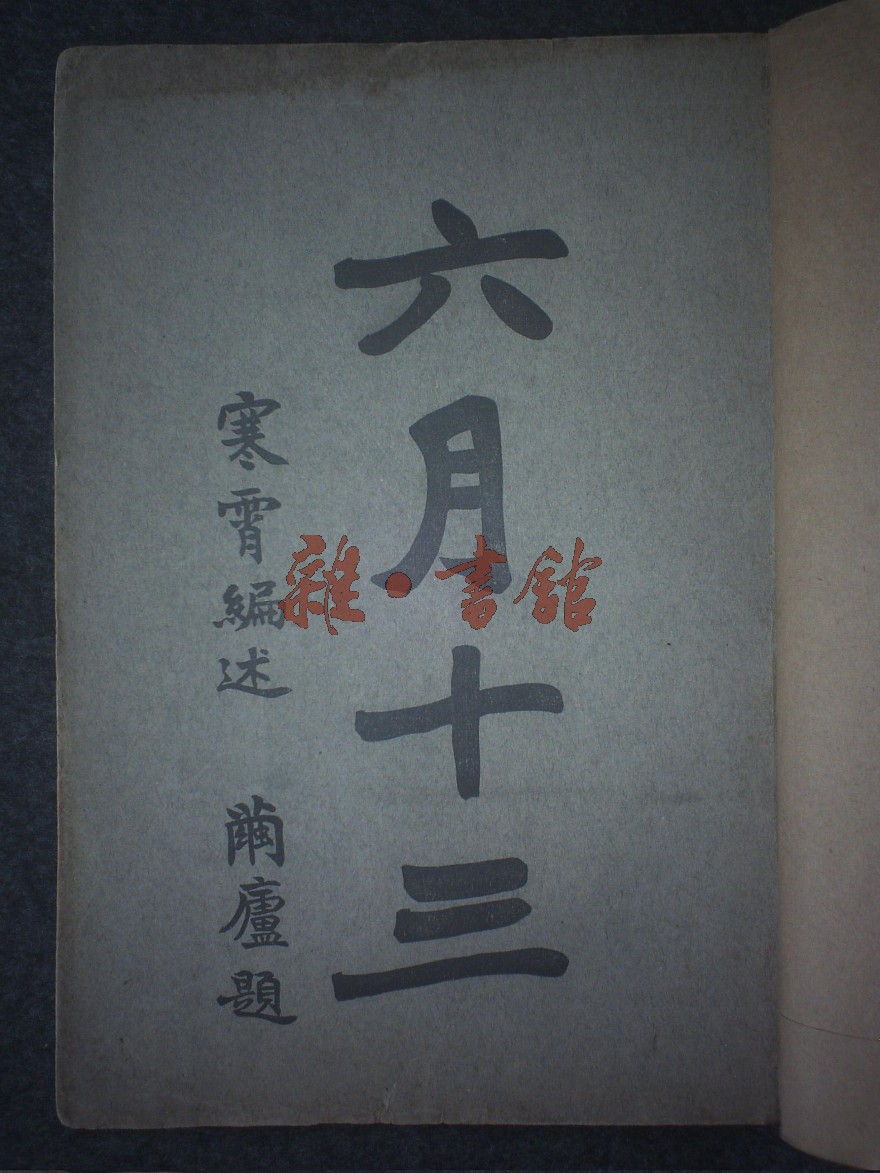 六月十三
寒霄編述 繭廬題
雜·書舘